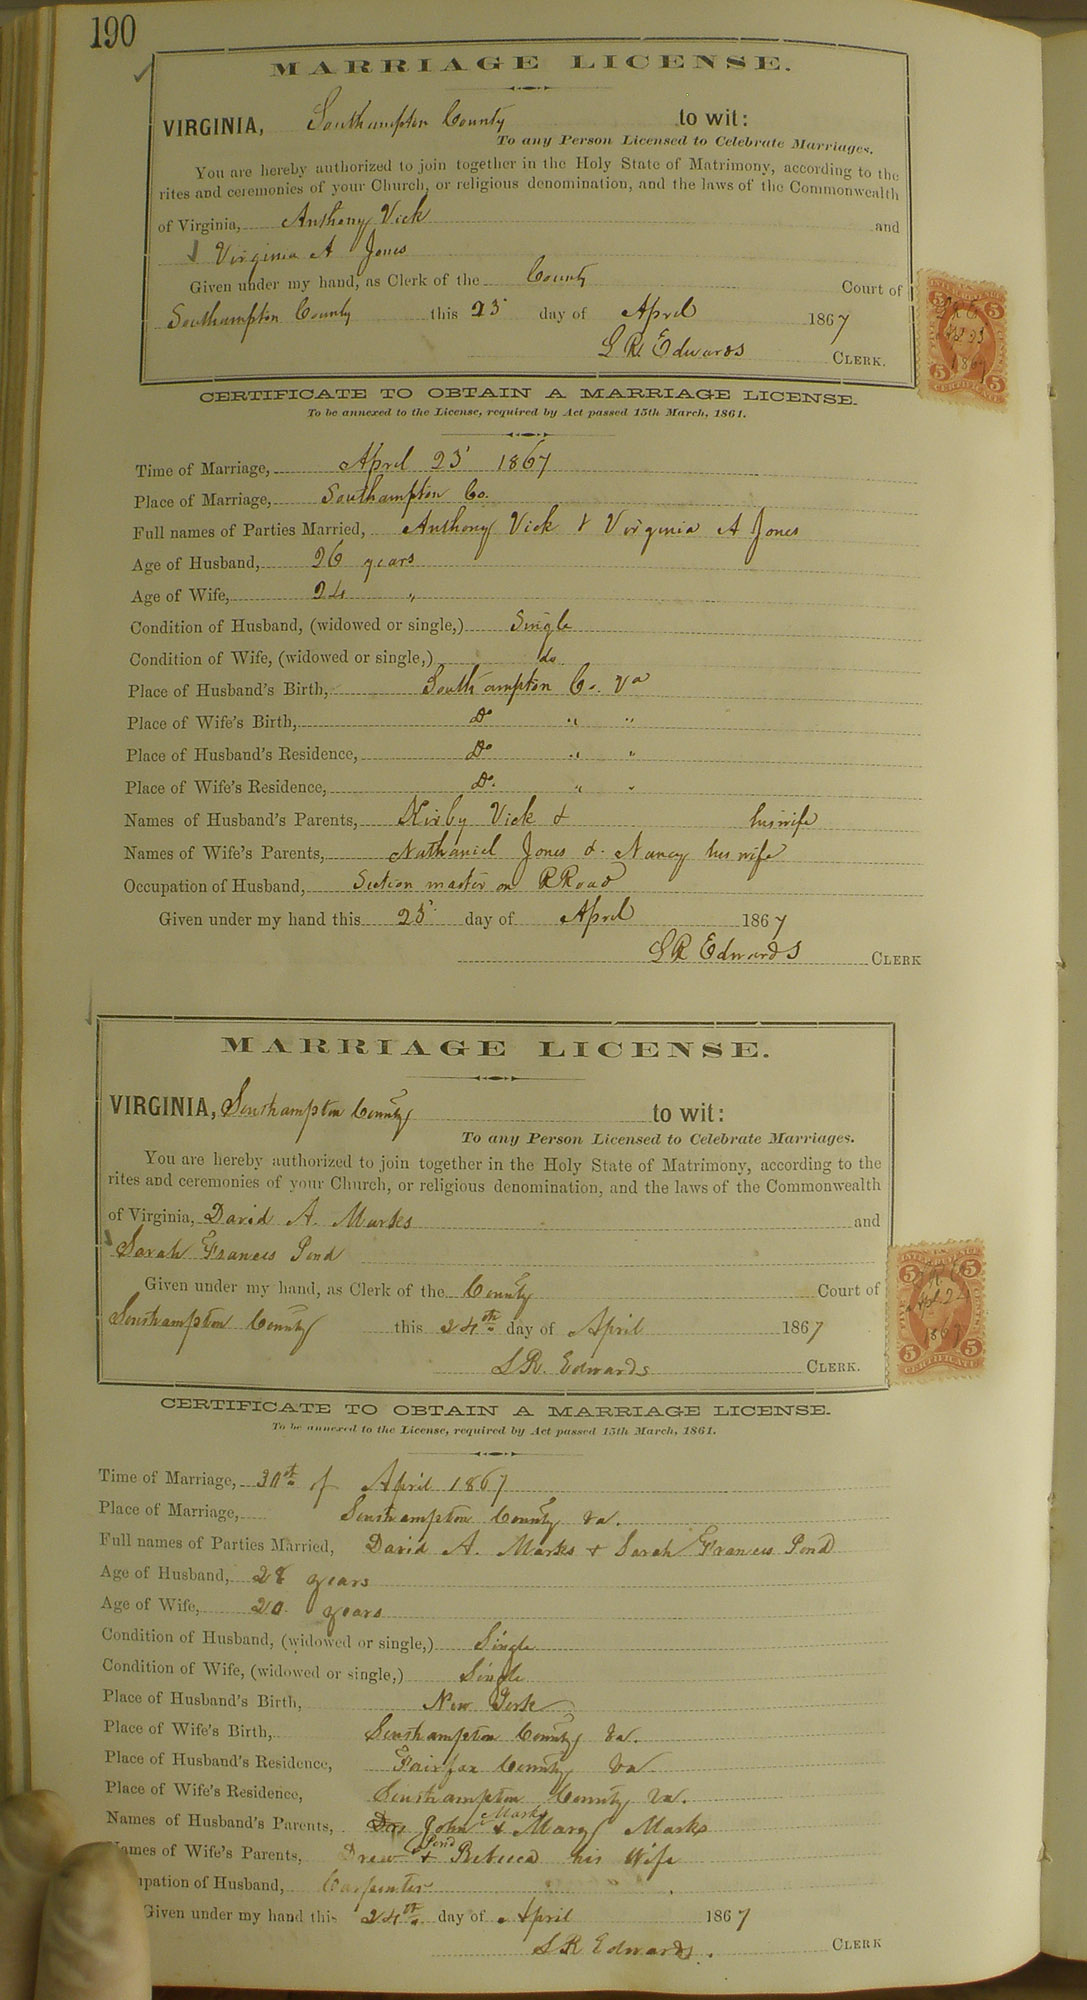 190
MARRIAGE LICENSE.
VIRGINIA, Southampton County to wit:
To any Person Licensed to Celebrate Marriages.
You are hereby authorized to join together in the Holy State of Matrimony, according to the
rites and ceremonies of your Church, or religious denomination, and the laws of the Commonwealth
of Virginia, Anthony Vick and
Virginia A Jones
Given under my hand, as Clerk of the County Court of
Southampton County this 23 day of April 1867
L R Edwards CLERK.
CERTIFICATE TO OBTAIN A MARRIAGE LICENSE.
To be annexed to the License, required by Act passed 15th March, 1861.
Time of Marriage, April 23 1867
Place of Marriage, Southampton Co.
Full names of Parties Married, Anthony Vick & Virginia A Jones
Age of Husband, 26 years
Age of Wife, 24 "
Condition of Husband, (widowed or single,) Single
Condition of Wife, (widowed or single,) do
Place of Husband's Birth, Southampton Co. Va
Place of Wife's Birth, Do " "
Place of Husband's Residence, Do " "
Place of Wife's Residence, Do " "
Names of Husband's Parents, Kirby Vick & his wife
Names of Wife's Parents, Nathaniel Jones & Nancy his wife
Occupation of Husband, Section master on RRoad
Given under my hand this 23 day of April 1867
L R Edwards CLERK
MARRIAGE LICENSE.
VIRGINIA, Southampton County to wit:
To any Person Licensed to Celebrate Marriages.
You are hereby authorized to join together in the Holy State of Matrimony, according to the
rites and ceremonies of your Church, or religious denomination, and the laws of the Commonwealth
of Virginia, David A. Marks and
Sarah Frances Pond
Given under my hand, as Clerk of the County Court of
Southampton County this 24th day of April 1867
L R. Edwards CLERK.
CERTIFICATE TO OBTAIN A MARRIAGE LICENSE.
To be annexed to the License, required by Act passed 15th March, 1861.
Time of Marriage, 30th of April 1867
Place of Marriage, Southampton County Va.
Full names of Parties Married, David A. Marks & Sarah Frances Pond
Age of Husband, 28 years
Age of Wife, 20 years
Condition of Husband, (widowed or single,) Single
Condition of Wife, (widowed or single,) Single
Place of Husband's Birth, New York
Place of Wife's Birth, Southampton County Va.
Place of Husband's Residence, Fairfax County Va
Place of Wife's Residence, Southampton County Va.
Names of Husband's Parents, John Marks & Mary Marks
Names of Wife's Parents, Drew Pond & Rebecca his Wife
upation of Husband, Carpenter
Given under my hand this 24th day of April 1867
L R Edwards. CLERK